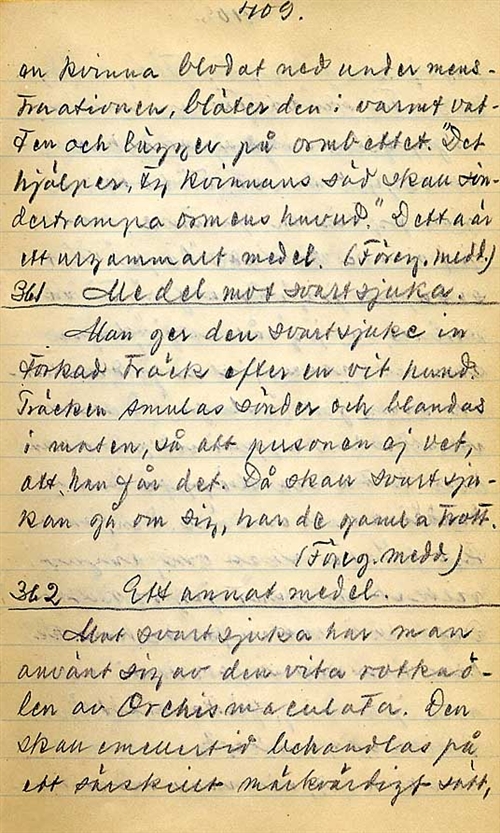 409.
en kvinna blodat ned under mens-
truationen, blöter den i varmt vat-
ten och lägger på ormbettet. "Det
hjälper, ty kvinnans säd skall sön-
dertrampa ormens huvud." Detta är
ett urgammalt medel. (Föreg. medd.)
361 Medel mot svartsjuka.
Man ger den svartsjuke in
torkad träck efter en vit hund.
Träcken smulas sönder och blandas
i maten, så att personen ej vet,
att han får det. Då skall svartsju-
kan gå om sig, har de gamla trott.
(Föreg. medd.)
362 Ett annat medel.
Mot svartsjuka har man
använt sig av den vita rotknö-
len av Orchis maculata. Den
skall emellertid behandlas på
ett särskilt märkvärdigt sätt,